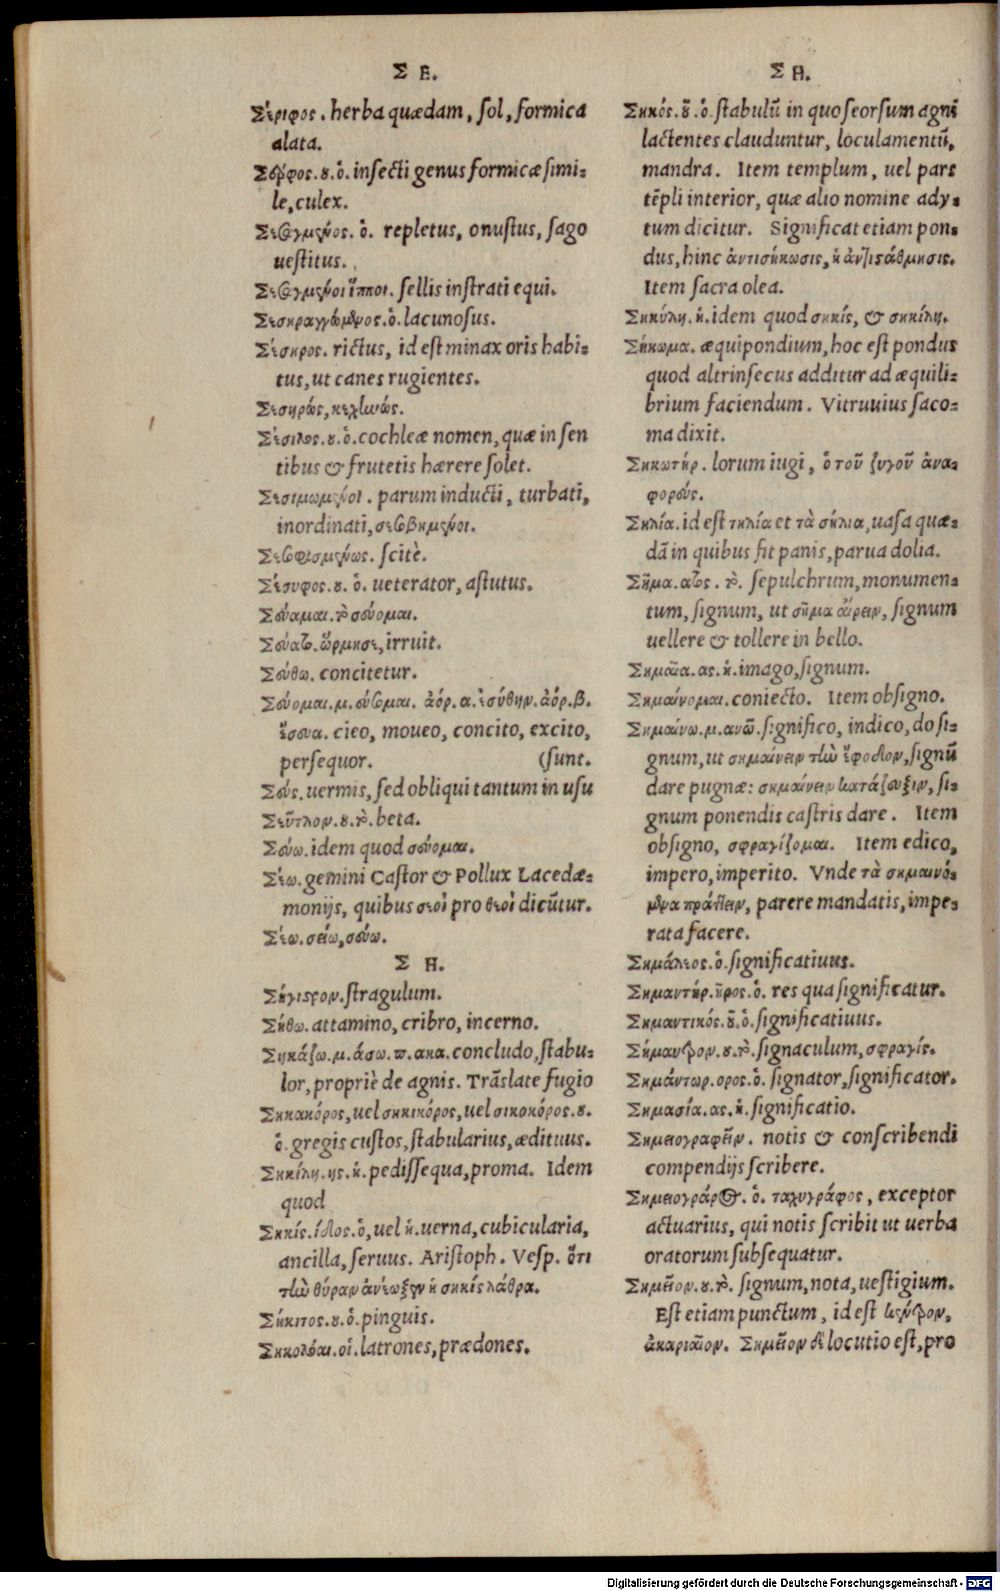 Σ Ε.
Σέριφος. herba quædam, sol, formica
alata.
Σέρφος. ȣ. ὁ. insecti genus formicæ simi-
le, culex.
Σεσαγμένος. ὁ. repletus, onustus, sago
uestitus.
Σεσαγμένοι ἵπποι. sellis instrati equi.
Σεσηραγγώμενος. ὁ. lacunosus.
Σέσηρος. rictus, id est minax oris habi-
tus, ut canes rugientes.
Σεσηρώς, κεχηνώς.
Σέσιλος. ȣ. ὁ. cochleæ nomen, quæ in sen
tibus & frutetis hærere solet.
Σεσιμωμένοι. parum inducti, turbati,
inordinati, σεσοβημένοι.
Σεσοφισμένως. scitè.
Σέσυφος. ȣ. ὁ. ueterator, astutus.
Σεύαμαι. τὸ σεύομαι.
Σεύατο. ὥρμησε, irruit.
Σεύθω. concitetur.
Σεύομαι. μ. εύσομαι. ἀόρ. α. ἐσύθην. ἀόρ. β.
ἔσευα. cieo, moueo, concito, excito,
persequor. (sunt.
Σεύς. uermis, sed obliqui tantum in usu
Σεῦτλον. ȣ. τὸ. beta.
Σεύω. idem quod σεύομαι.
Σέω. gemini Castor & Pollux Lacedæ-
monijs, quibus σεοὶ pro θεοὶ dicūtur.
Σέω. σείω, σεύω.
Σ Η.
Σήγιστον. stragulum.
Σήθω. attamino, cribro, incerno.
Σηκάζω. μ. άσω. π. ακα. concludo, stabu-
lor, propriè de agnis. Trāslate fugio
Σηκακόρος, uel σηκικόρος, uel σικοκόρος. ȣ.
ὁ. gregis custos, stabularius, ædituus.
Σηκίλη. ης. ἡ. pedissequa, proma. Idem
quod
Σηκίς. ίδος. ὁ, uel ἡ. uerna, cubicularia,
ancilla, seruus. Aristoph. Vesp. ὅτι
τὴν θύραν ἀνέωξεν ἡ σηκὶς λάθρα.
Σήκιτος. ȣ. ὁ. pinguis.
Σηκολόαι. οἱ. latrones, prædones.
Σ Η.
Σηκός. ȣ̃. ὁ. stabulū in quo seorsum agni
lactentes clauduntur, loculamentū,
mandra. Item templum, uel pars
tēpli interior, quæ alio nomine ady-
tum dicitur. Significat etiam pon-
dus, hinc ἀντισήκωσις, ἡ ἀντιστάθμησις.
Item sacra olea.
Σηκύλη. ἡ. idem quod σηκίς, & σηκίλη.
Σήκωμα. æquipondium, hoc est pondus
quod altrinsecus additur ad æquili-
brium faciendum. Vitruuius saco-
ma dixit.
Σηκωτήρ. lorum iugi, ὁ τοῦ ζυγοῦ ἀνα-
φορούς.
Σηλία. id est τηλία et τὰ σήλια, uasa quæ-
dā in quibus fit panis, parua dolia.
Σῆμα. ατος. τὸ. sepulchrum, monumen-
tum, signum, ut σῆμα αἴρειν, signum
uellere & tollere in bello.
Σημαῖα. ας. ἡ. imago, signum.
Σημαίνομαι. coniecto. Item obsigno.
Σημαίνω. μ. ανῶ. significo, indico, do si-
gnum, ut σημαίνειν τὴν ἔφοδον, signū
dare pugnæ: σημαίνειν κατάζευξιν, si-
gnum ponendis castris dare. Item
obsigno, σφραγίζομαι. Item edico,
impero, imperito. Vnde τὰ σημαινό-
μενα πράττειν, parere mandatis, impe-
rata facere.
Σημάλεος. ὁ. significatiuus.
Σημαντήρ. ῆρος. ὁ. res qua significatur.
Σημαντικός. ȣ̃. ὁ. significatiuus.
Σήμαντρον. ȣ. τὸ. signaculum, σφραγίς.
Σημάντωρ. ορος. ὁ. signator, significator.
Σημασία. ας. ἡ. significatio.
Σημειογραφεῖν. notis & conscribendi
compendijs scribere.
Σημειογράφος. ὁ. ταχυγράφος, exceptor
actuarius, qui notis scribit ut uerba
oratorum subsequatur.
Σημεῖον. ȣ. τὸ. signum, nota, uestigium.
Est etiam punctum, id est κέντρον,
ἀκαριαῖον. Σημεῖον δὲ locutio est, pro
Digitalisierung gefördert durch die Deutsche Forschungsgemeinschaft - DFG